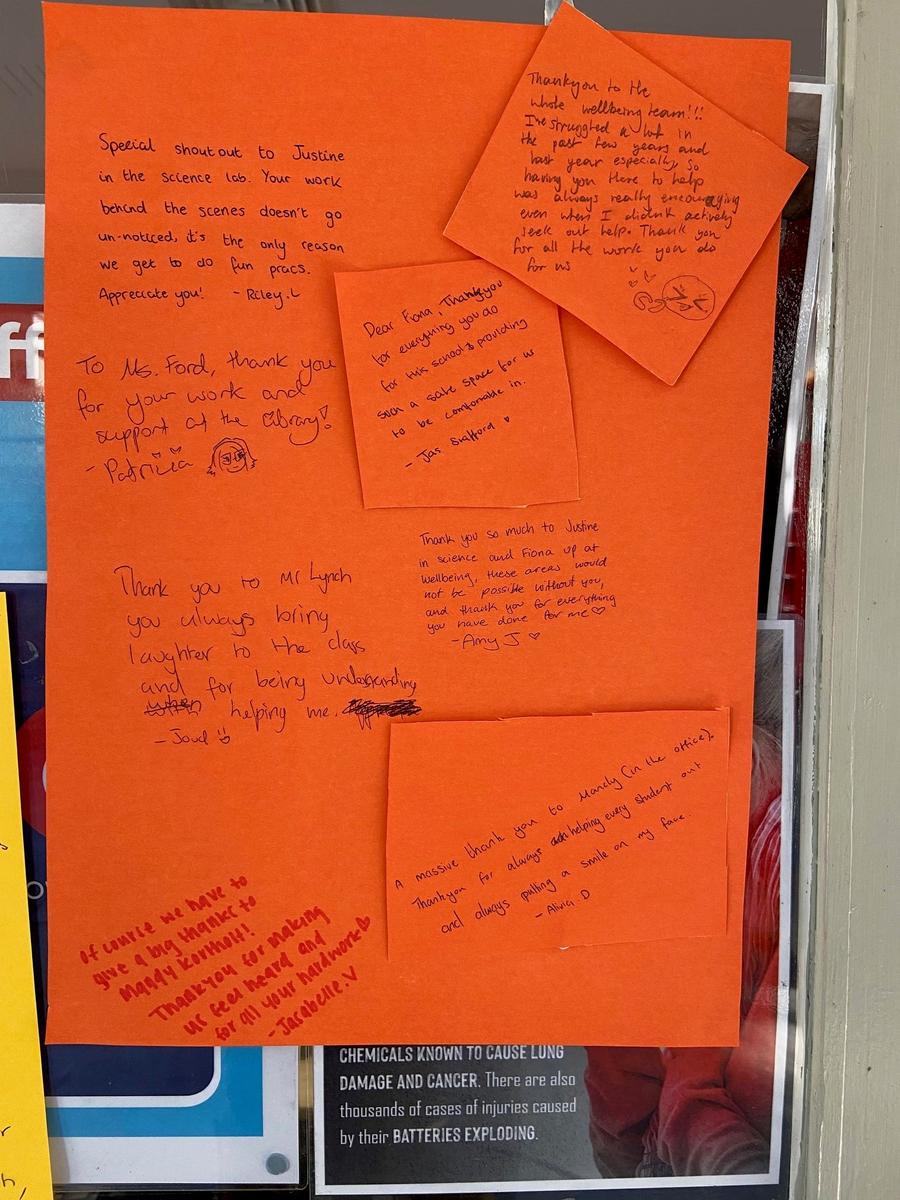 Special shout out to Justine
in the science lab. Your work
behind the scenes doesn't go
un-noticed, it's the only reason
we get to do fun pracs.
Appreciate you! - Riley.L
Thankyou to the
whole wellbeing team!!!
I've struggled a lot in
the past few years and
last year especially, so
having you there to help
was always really encouraging
even when I didn't actively
seek out help. Thank you
for all the work you do
for us
Dear Fiona, Thankyou
for everything you do
for this school & providing
such a safe space for us
to be comfortable in.
- Jas. Stafford
To Ms. Ford, thank you
for your work and
support at the library!
- Patricia
Thank you so much to Justine
in science and Fiona up at
wellbeing, these areas would
not be possible without you,
and thank you for everything
you have done for me ♡
- Amy J ♡
Thank you to Mr Lynch
you always bring
laughter to the class
and for being understanding
when helping me.
- Joud
A massive thank you to Mandy (in the office).
Thankyou for always helping every student out
and always putting a smile on my face.
- Alivia D
Of course we have to
give a big thanks to
Mandy Kornholt!
Thankyou for making
us feel heard and
for all your hardwork ♡
- Jasabelle.V
ff
CHEMICALS KNOWN TO CAUSE LUNG
DAMAGE AND CANCER. There are also
thousands of cases of injuries caused
by their BATTERIES EXPLODING.